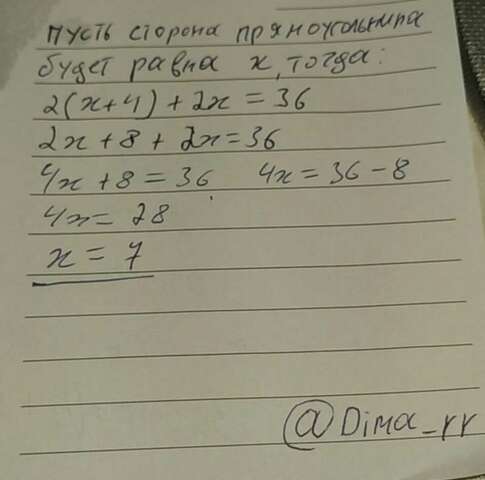 пусть сторона прямоугольника
будет равна x, тогда:
2(x+4)+2x=36
2x+8+2x=36
4x+8=36 4x=36-8
4x=28
x=7
@Dima_rr